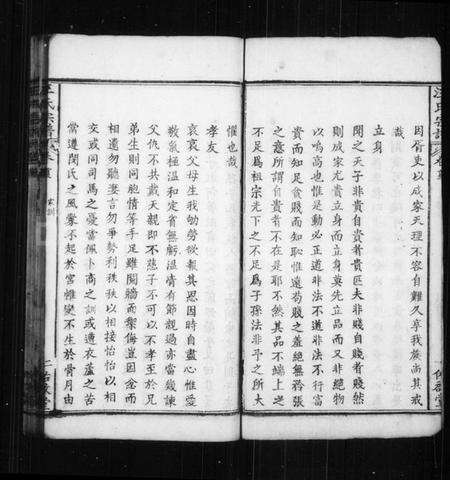 因胥吏以成家天理不容自難久享我族尚其戒
哉
立身
聞之天子非貴自貴者貴匹夫非賤自賤者賤然
則成家尤貴立身而立身莫先立品而又非絕物
以鳴高也惟是動必正道非法不道非法不行富
貴而知足食貧而知恥惟遠苟賤之羞絕無矜張
之意所謂自貴者不在是耶不然其品不端上之
不足爲祖宗光下之不足爲子孫法非予之所大
懼也哉
孝友
哀哀父母生我劬勞欲報其恩因時自盡心惟愛
敬氣極溫和定省無虧温凊有節親過亦當幾諫
父仇不共戴天親即不慈子不可以不孝至於兄
弟生則同胞情等手足雖鬩牆而禦侮豈因忿而
相遠勿聽妻言勿爭勢利秩秩以相接怡怡以相
交或同司馬之憂當佩卜商之訓或遭衣蘆之苦
當遵閔氏之風釁不起於宮帷變不生於骨肉由
汪氏宗譜
家訓